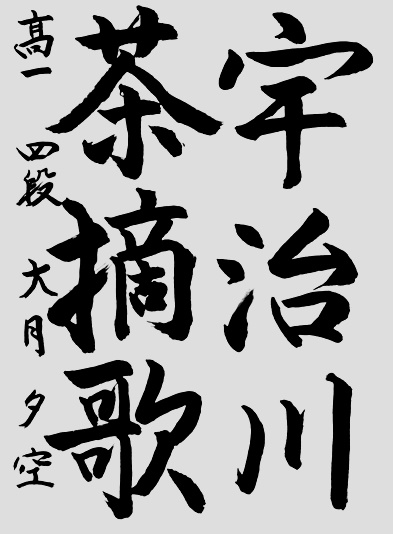 宇治川
茶摘歌
高一 四段 大月 夕空